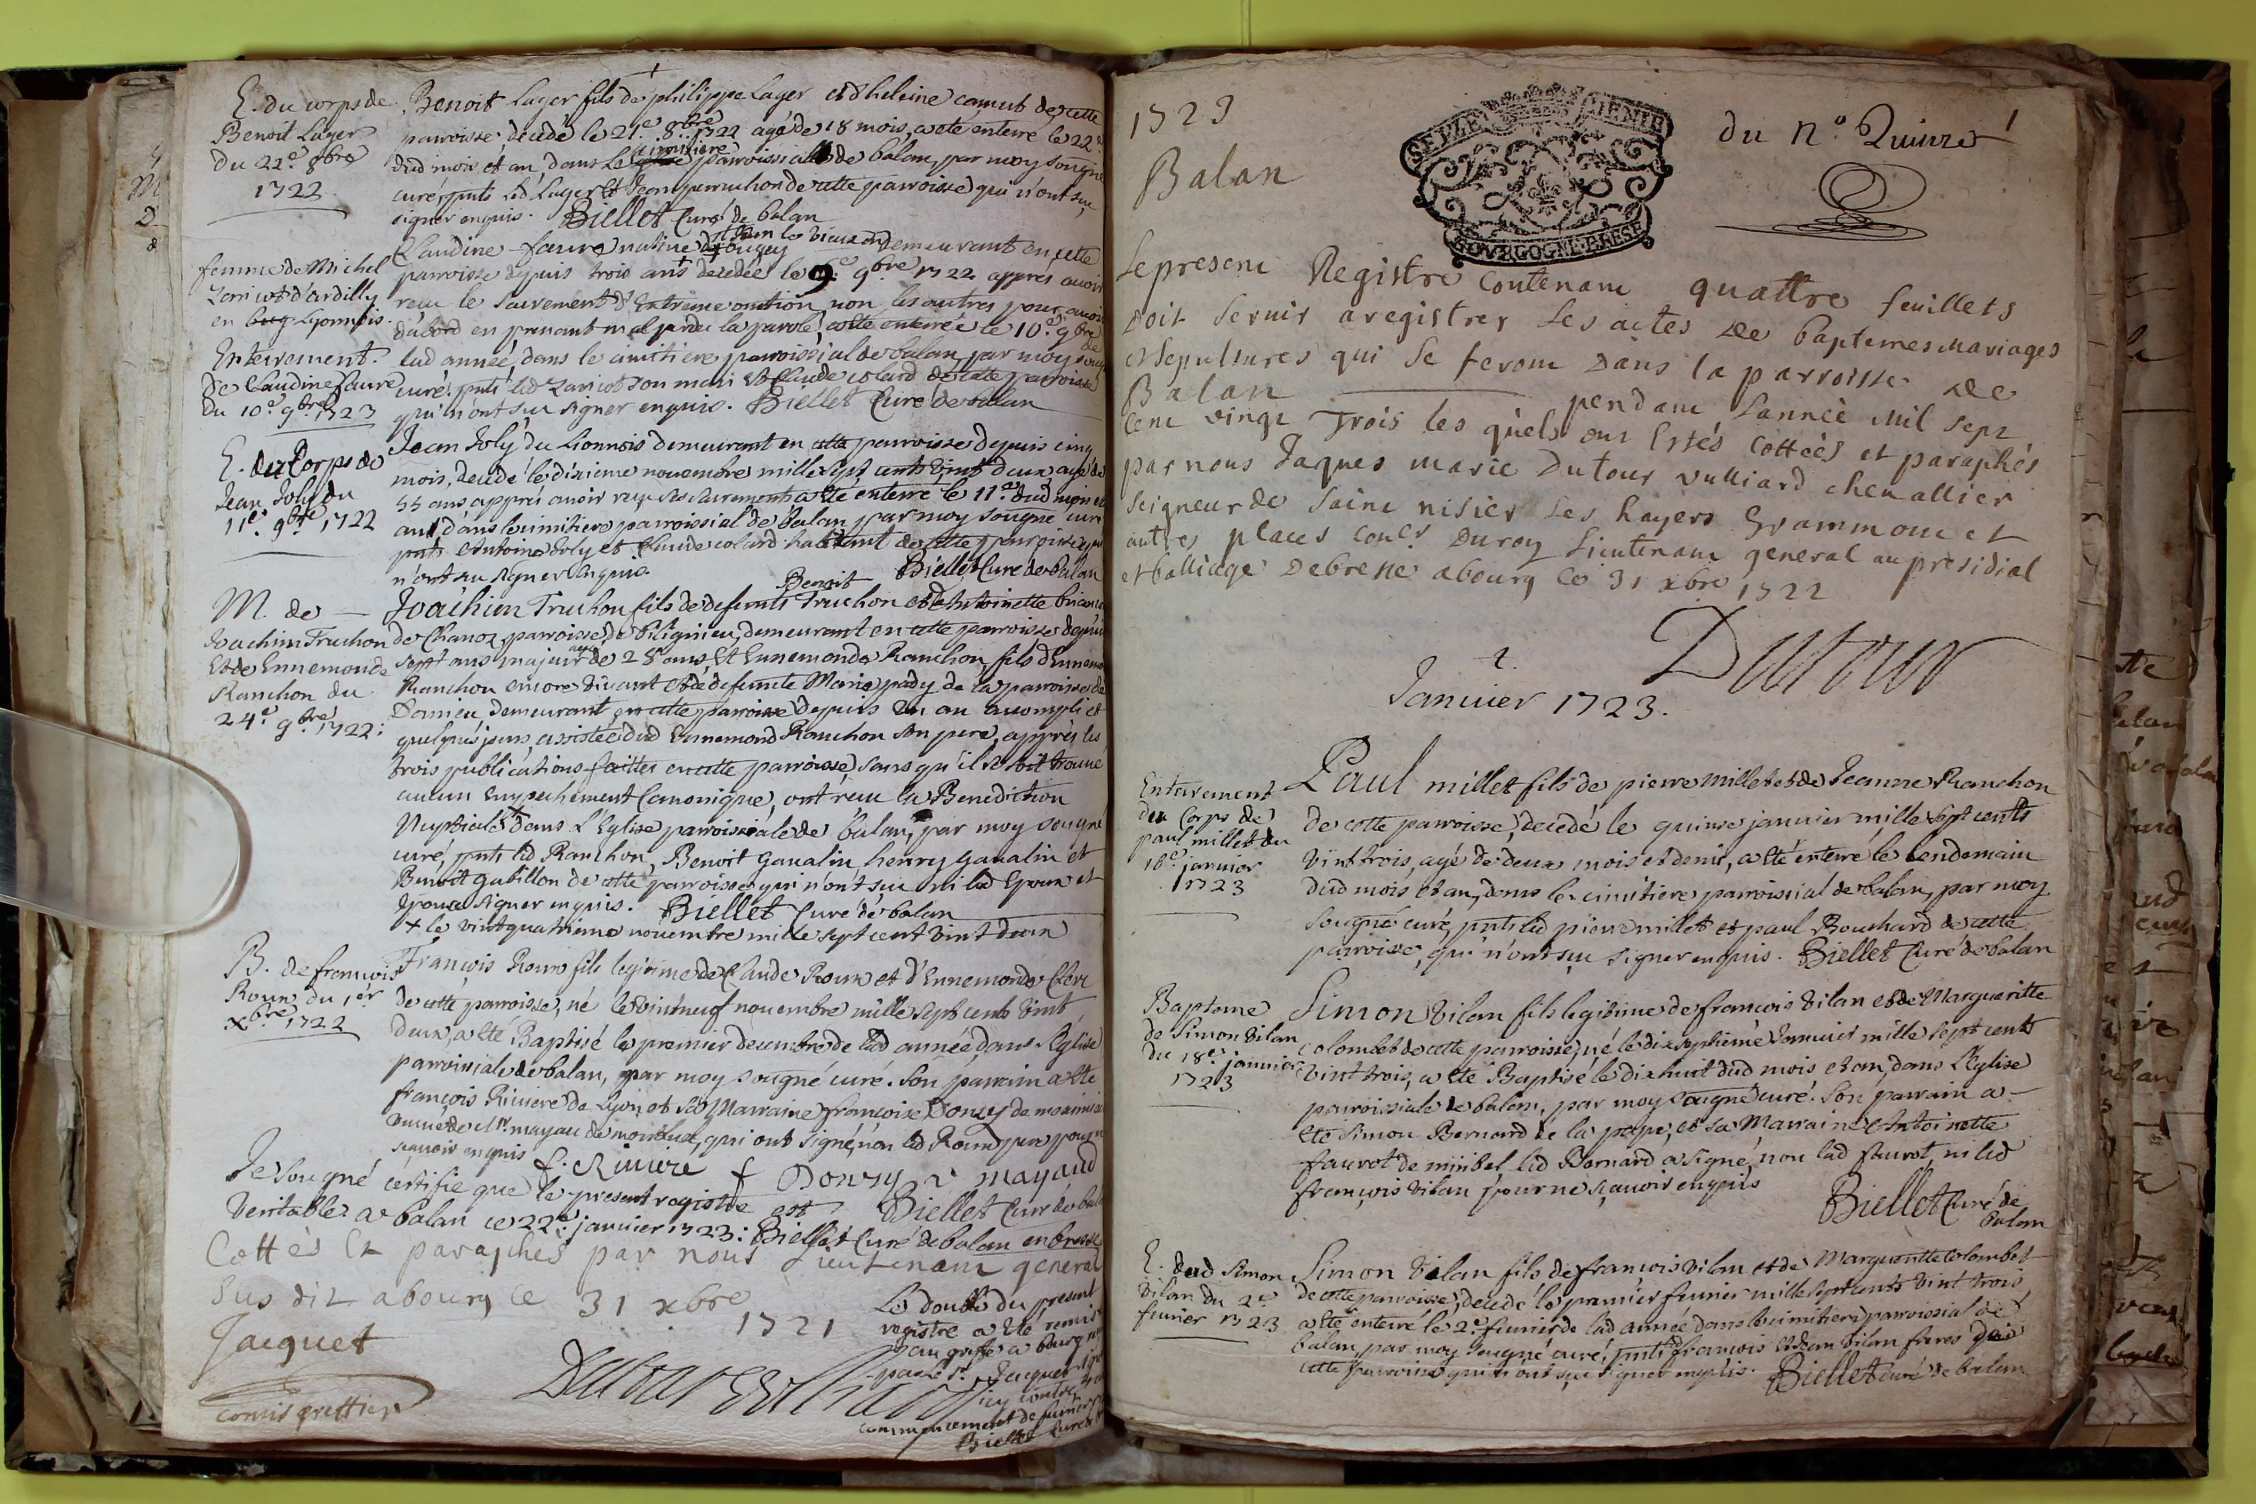 E. du corps de
Benoit Lager
du 22e. 8bre
1722
Benoit Lager fils de philippe Lager et d'heleine camut de cette
parroisse, decedé le 21e. 8bre 1722 agé de 18 mois, a eté enterré le 22e
dud mois et an, dans le cimitiere parroissial de balan, par moy sougné
curé, pnts led Lager et Jean peruchon de cette parroisse qui n'ont su
signer enquis. Biellet Curé de balan
femme de Michel
d'ardilly
en Lyonnois.
Enterrement
de Claudine faure
du 10e. 9bre 1723
Claudine faure native demeurant en cette
parroisse depuis trois ans decedée le 9e. 9bre 1722 appres avoir
recu le sacrement d'Extreme onction, non les autres pour avoir
d'abord en prenant mal perdu la parole, a eté enterrée le 10e. 9bre
lad année, dans le cimitiere parroissial de balan, par moy sougné
curé, pnts led son mari et Claude colard de cette parroisse
qui n'ont su signer enquis. Biellet Curé de balan
E. du Corps de
Jean Joly du
11e. 9bre 1722
Jean Joly du Lionnois demeurant en cette parroisse depuis cinq
mois, decedé le dixieme novembre mille sept cents vint deux agé de
55 ans appres avoir reçu ses sacrements a eté enterré le 11e. dud mois et
an, dans le cimitiere parroissial de balan, par moy sougné curé
pnts Antoine Joly et Claude colard habitant de cette parroisse qui
n'ont su signer enquis. Biellet Curé de balan
M. de
Joachim Truchon
Et de Ennemonde
Ranchon du
24e. 9bre 1722:
Benoit
Joachim Truchon fils de defunts Truchon et d'Antoinette
de Chanoz, parroisse de biligneu, demeurant en cette parroisse depuis
sept ans, majeur agé de 28 ans, Et Ennemonde Ranchon, fils d'Ennemond
Ranchon encore vivant et de defunte Marie pady de la parroisse de
Domieu, demeurant en cette parroisse depuis un an accompli et
quelques jours, assistée dud Ennemond Ranchon son pere, apprés les
trois publications faittes en cette parroisse, sans qu'il se soit trouvé
aucun Empechement Canonique, ont recu la Benediction
Nuptiale dans l'Eglise parroissiale de balan, par moy sougné
curé, pnts led Ranchon, Benoit gavalin, henry gavalin et
Benoit gubillon de cette parroisse qui n'ont sçu ni led Epoux et
Epouse signer enquis. Biellet Curé de balan
+ le vint quatrieme novembre mille sept cent vint deux
B. de francois
Roux du 1er
xbre 1722
François Roux fils legitime de Claude Roux et d'Ennemonde Clere
de cette parroisse, né le vint neuf novembre mille sept cents vint
deux, a eté Baptisé le premier decembre de lad année, dans l'Eglise
parroissiale de balan, par moy sougné curé. Son parrain a eté
françois Riviere de Lyon, et sa Marraine françoise Douzy de
mayau de montluel, qui ont signé, non led Roux pere pour ne
sçavoir enquis f. Riviere f Douzy v mayaud
Biellet Curé de balan
Je sougné certifie que le present registre est
Veritable a balan ce 22e. janvier 1723: Biellet Curé de balan en bresse
Cottés Et paraphés par nous Lieutenant general
sus dit a bourg ce 31 xbre
1721
Jacquet
commis greffier
Le double du present
registre a eté remis
au greffe a bourg
par le Sr. Jacquet
commencement de fevrier
Biellet Curé
1723
Balan
SEPLE
BOVRGOGNE.BRESE
du n°. Quinze
1
Le present Registre Contenant quattre feuillets
doit servir a registrer les actes de baptemes mariages
et sepultures qui se feront dans la parroisse de
Balan pendant L'année mil sept
Cent vingt Trois les quels ont Estés Cottées et paraphés
par nous Jaques Marie Dutour Vulliard chevallier
seigneur de saint nisier les hayes Grammont et
autres places Coner. Du roy Lieutenant general au presidial
et balliage De bresse a bourg ce 31 xbre 1722
Dutour
2.
Janvier 1723.
Enterrement
du Corps de
paul millet du
16e janvier
1723
Paul millet fils de pierre millet et de Jeanne Ranchon
de cette parroisse, decedé le quinse janvier mille sept cents
vint trois, agé de deux mois et demi, a eté enterré le lendemain
dud mois et an, dans le cimitiere parroissial de balan, par moy
sougné curé, pnts led pierre millet et paul Bouchard de cette
parroisse, qui n'ont sçu signer enquis. Biellet Curé de balan
Bapteme
de Simon vilan
du 18e. janvier
1723
Simon Vilan fils legitime de francois vilan et de Margueritte
colombet de cette parroisse, né le dix septiémé Janvier mille sept cents
vint trois, a eté Baptisé le dix huit dud mois et an, dans l'Eglise
parroissiale de balan, par moy sougné curé. Son parrain a
eté Simon Bernard de la pape, et sa Marraine Antoinette
fauvet de miribel led Bernard a signé, non lad fauvet, ni led
françois vilan pour ne sçavoir enquis
Biellet Curé de
balan
E. dud Simon
vilan du 2e
fevrier 1723
Simon Vilan fils de françois vilan et de Margueritte Colombet
de cette parroisse, decedé le premier fevrier mille sept cents vint trois
a eté enterré le 2e. fevrier de lad année dans le cimitiere parroissial de
balan, par moy sougné curé, pnts led francois et Jean vilan freres de
cette parroisse qui n'ont sçu signer enquis. Biellet Curé de balan